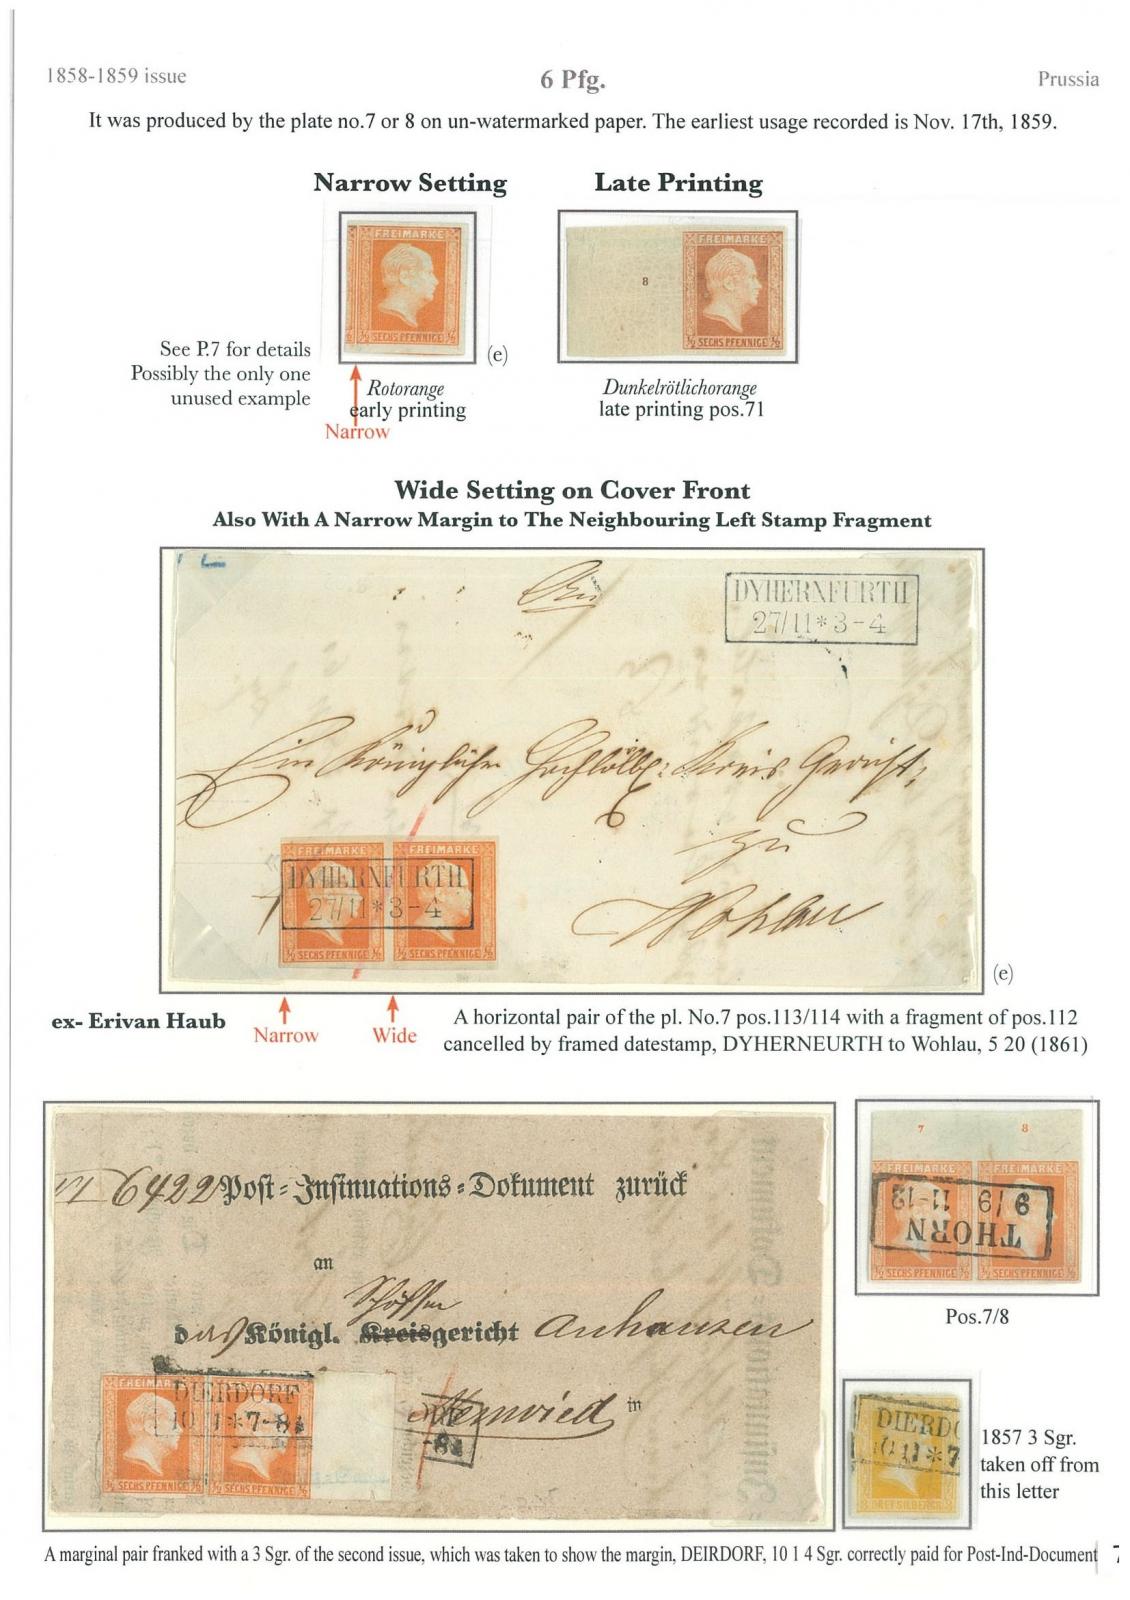 1858-1859 issue
6 Pfg.
Prussia
It was produced by the plate no.7 or 8 on un-watermarked paper. The earliest usage recorded is Nov. 17th, 1859.
Narrow Setting
Late Printing
FREIMARKE
½ SECHS PFENNIGE ½
8
FREIMARKE
½ SECHS PFENNIGE ½
(e)
See P.7 for details
Possibly the only one
unused example
Rotorange
early printing
Narrow
Dunkelrötlichorange
late printing pos.71
Wide Setting on Cover Front
Also With A Narrow Margin to The Neighbouring Left Stamp Fragment
DYHERNFURTH
27/11*3-4
Ein Königliches Hochlöbl: Kreis Gericht,
zu
Wohlau
FREIMARKE FREIMARKE
DYHERNFURTH
27/11*3-4
½ SECHS PFENNIGE ½ ½ SECHS PFENNIGE ½
(e)
ex- Erivan Haub
Narrow
Wide
A horizontal pair of the pl. No.7 pos.113/114 with a fragment of pos.112
cancelled by framed datestamp, DYHERNEURTH to Wohlau, 5 20 (1861)
6422 Post-Insinuations-Dokument zurück
an
Schöffen
das Königl. Kreisgericht Anhausen
Neuwied in
FREIMARKE
DIERDORF
10 1*7-8
½ SECHS PFENNIGE ½ ½ SECHS PFENNIGE ½
-8
7 8
FREIMARKE FREIMARKE
THORN
9/9 11-12
½ SECHS PFENNIGE ½ ½ SECHS PFENNIGE ½
Pos.7/8
DIERDO
*7
3 DREI SILBERGR. 3
1857 3 Sgr.
taken off from
this letter
A marginal pair franked with a 3 Sgr. of the second issue, which was taken to show the margin, DEIRDORF, 10 1 4 Sgr. correctly paid for Post-Ind-Document
7